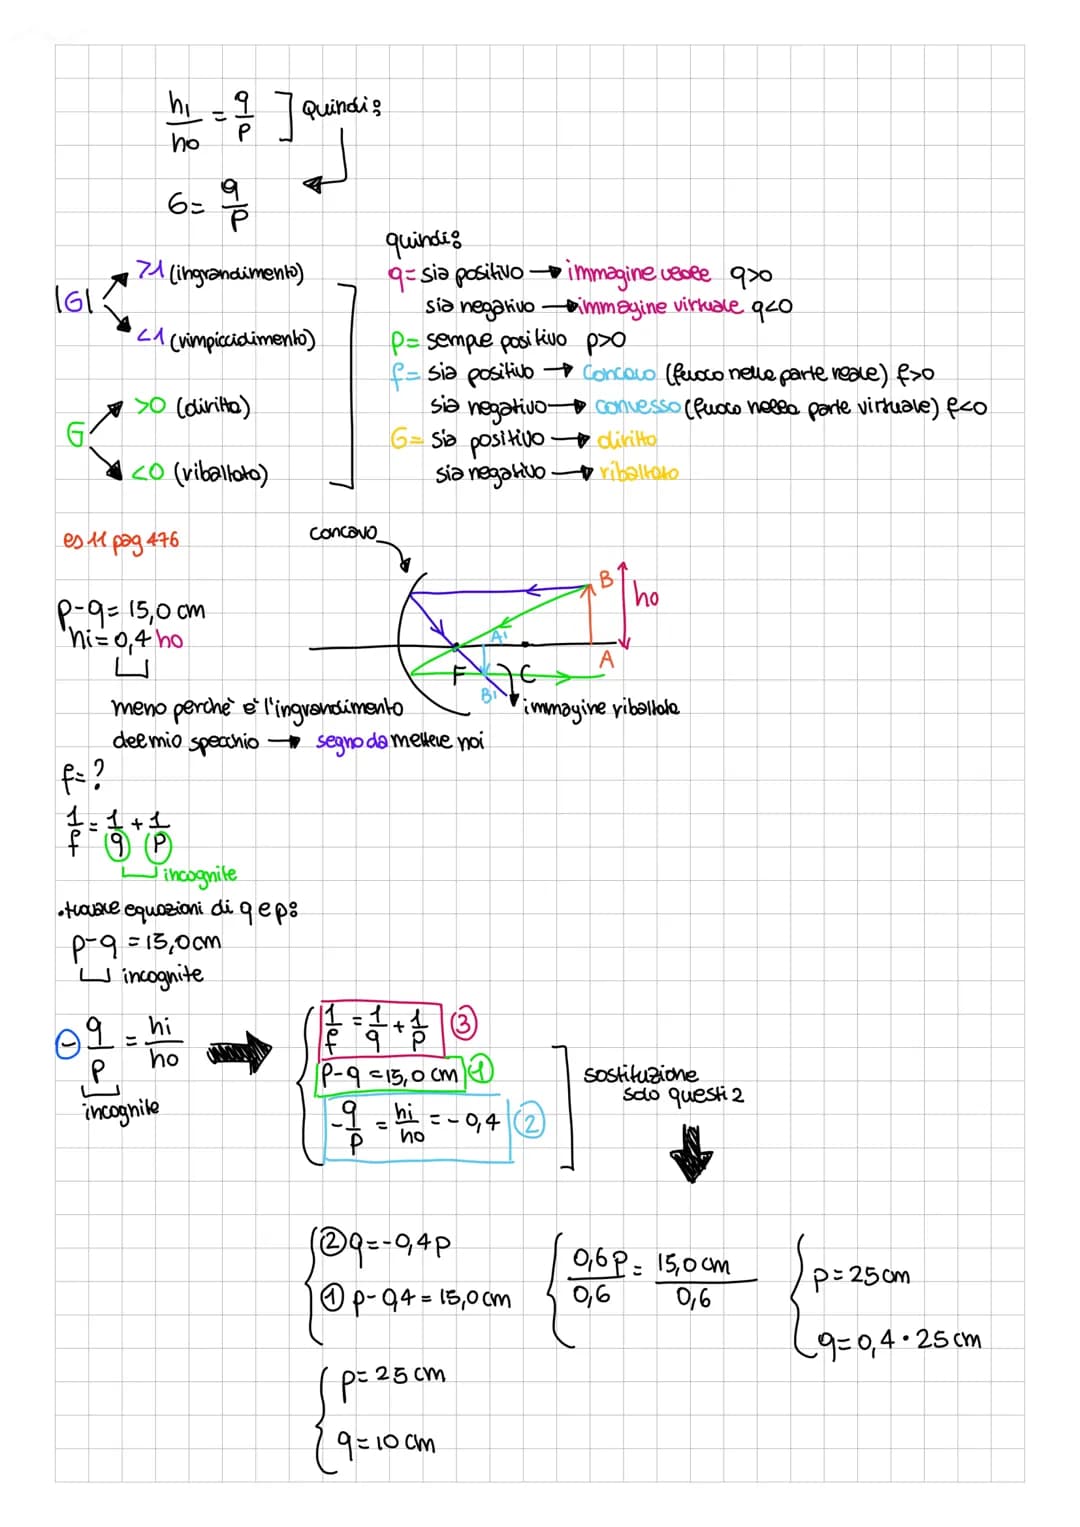 hi/ho = q/p ] Quindi:
G = q/p
quindi:
|G| >1 (ingrandimento)
<1 (rimpicciolimento)
G >0 (diritta)
<0 (riballtato)
q= sia positivo → immagine reale q>0
sia negativo → immagine virtuale q<0
p= sempre positivo p>0
f= sia positivo → concavo (fuoco nella parte reale) f>0
sia negativo → convesso (fuoco nella parte virtuale) f<0
G= sia positivo → diritto
sia negativo → ribaltato
es 11 pag 476
concavo
B
ho
A'
A
F
C
B'
immagine ribaltata
p-q= 15,0 cm
hi=0,4 ho
meno perchè è l'ingrandimento
del mio specchio → segno da mettere noi
f=?
1/f = 1/q + 1/p
incognite
•trovare equazioni di q e p:
p-q = 15,0 cm
incognite
- q/p = hi/ho
incognite
1/f = 1/q + 1/p ③
p-q = 15,0 cm ①
-q/p = hi/ho = -0,4 ②
sostituzione
solo questi 2
② q=-0,4p
① p-0,4 = 15,0 cm
0,6p/0,6 = 15,0 cm/0,6
p=25 cm
q=0,4•25 cm
p= 25 cm
q= 10 cm